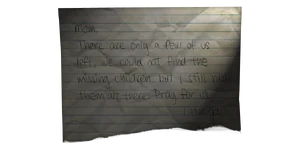 Mom,
There are only a few of us
left, we could not find the
missing children but I still
them are there. Pray for us.